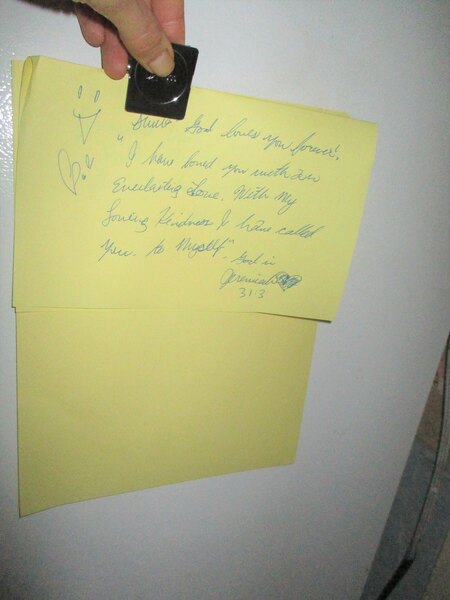 God loves you forever!,
I have loved you with an
Everlasting Love. With My
Loving Kindness I have called
you. to Myself" - God in
Jeremiah
31:3